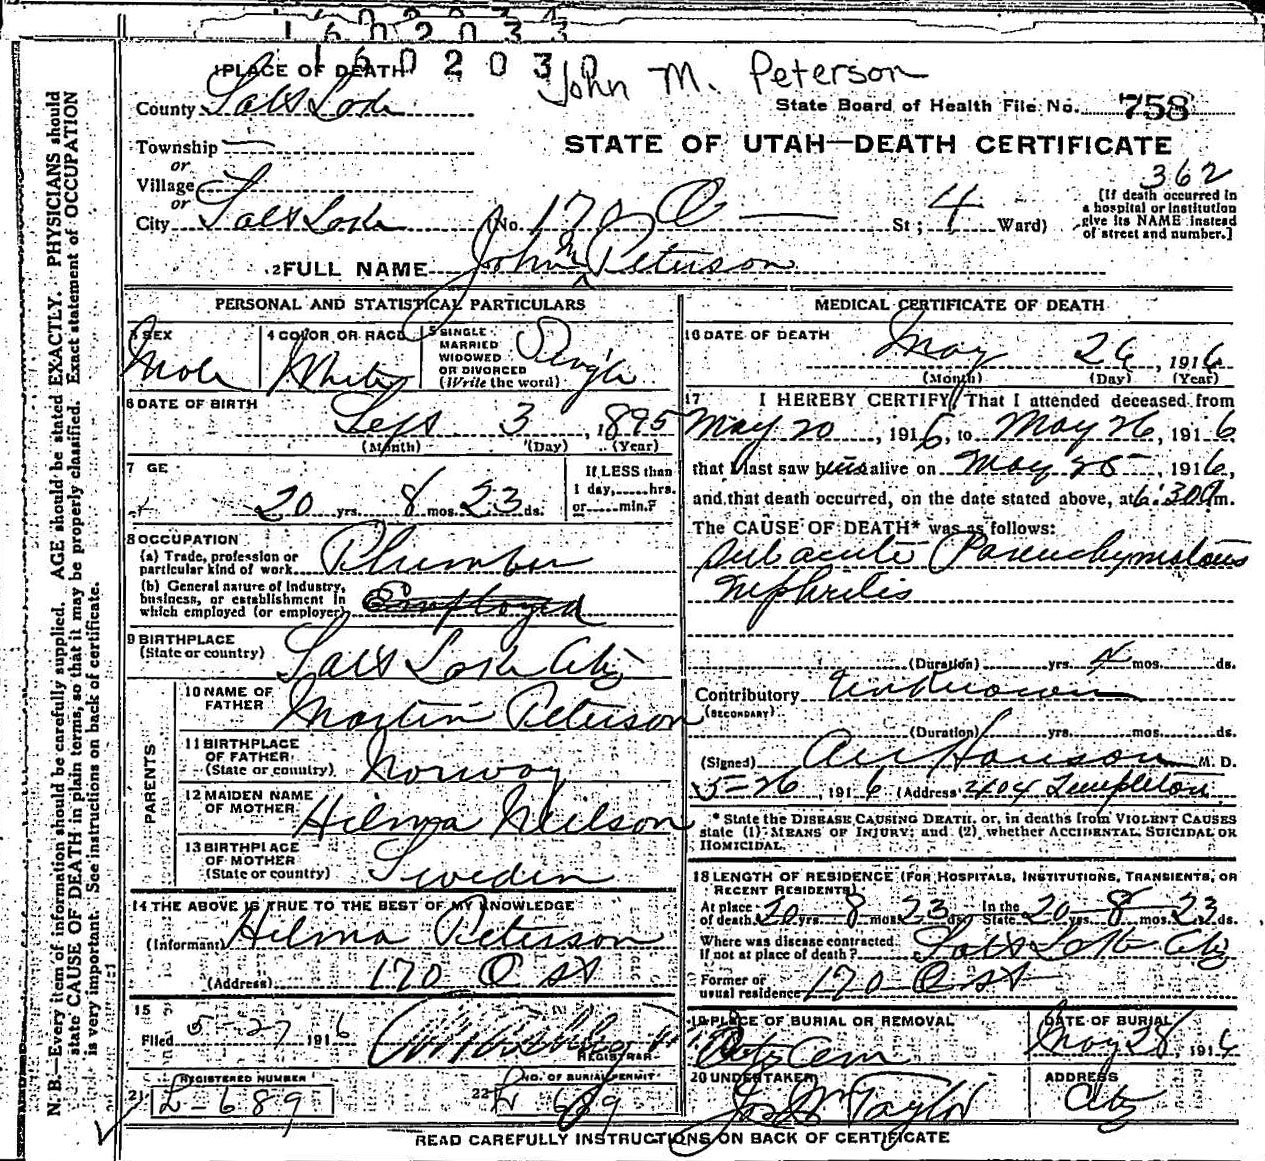 160203
PLACE OF DEATH
John M. Peterson
County Salt Lake
State Board of Health File No. 758
STATE OF UTAH—DEATH CERTIFICATE
Township
or
Village
or
City Salt Lake (No. 170 Q St; 4 Ward)
362
[If death occurred in
a hospital or institution
give its NAME instead
of street and number.]
2 FULL NAME John M Peterson
PERSONAL AND STATISTICAL PARTICULARS
3 SEX
Male
4 COLOR OR RACE
White
5 SINGLE
MARRIED
WIDOWED
OR DIVORCED
(Write the word)
Single
6 DATE OF BIRTH
Sept 3, 1895
(Month) (Day) (Year)
7 GE
20 yrs. 8 mos. 23 ds.
If LESS than
1 day,......hrs.
or......min.?
8 OCCUPATION
(a) Trade, profession or
particular kind of work Plumber
(b) General nature of industry,
business, or establishment in
which employed (or employer) Employed
9 BIRTHPLACE
(State or country) Salt Lake City
PARENTS
10 NAME OF
FATHER Martin Peterson
11 BIRTHPLACE
OF FATHER
(State or country) Norway
12 MAIDEN NAME
OF MOTHER Hilma Neilson
13 BIRTHPLACE
OF MOTHER
(State or country) Sweden
14 THE ABOVE IS TRUE TO THE BEST OF MY KNOWLEDGE
(Informant) Hilma Peterson
(Address) 170 Q St
15
Filed 5-27 1916
REGISTRAR
21 REGISTERED NUMBER
L-689
22 NO. OF BURIAL PERMIT
689
MEDICAL CERTIFICATE OF DEATH
16 DATE OF DEATH
May 26, 1916
(Month) (Day) (Year)
17 I HEREBY CERTIFY, That I attended deceased from
May 20, 1916, to May 26, 1916
that I last saw him alive on May 25, 1916,
and that death occurred, on the date stated above, at 6:30 A m.
The CAUSE OF DEATH* was as follows:
Sub acute Parenchymatous
Nephritis
(Duration) yrs. 4 mos. ds.
Contributory Unknown
(SECONDARY)
(Duration) yrs. mos. ds.
(Signed) Hanson M. D.
5-26, 1916 (Address) 404 Templeton
* State the DISEASE CAUSING DEATH, or, in deaths from VIOLENT CAUSES
state (1) MEANS OF INJURY; and (2) whether ACCIDENTAL, SUICIDAL OR
HOMICIDAL.
18 LENGTH OF RESIDENCE (FOR HOSPITALS, INSTITUTIONS, TRANSIENTS, OR
RECENT RESIDENTS)
At place
of death 20 yrs. 8 mos. 23 ds. In the
State 20 yrs. 8 mos. 23 ds.
Where was disease contracted
if not at place of death? Salt Lake City
Former or
usual residence 170 Q St
19 PLACE OF BURIAL OR REMOVAL
City Cem
DATE OF BURIAL
May 28, 1916
20 UNDERTAKER
Jos Wm Taylor
ADDRESS
City
READ CAREFULLY INSTRUCTIONS ON BACK OF CERTIFICATE
N. B.—Every item of information should be carefully supplied. AGE should be stated EXACTLY. PHYSICIANS should
state CAUSE OF DEATH in plain terms, so that it may be properly classified. Exact statement of OCCUPATION
is very important. See instructions on back of certificate.